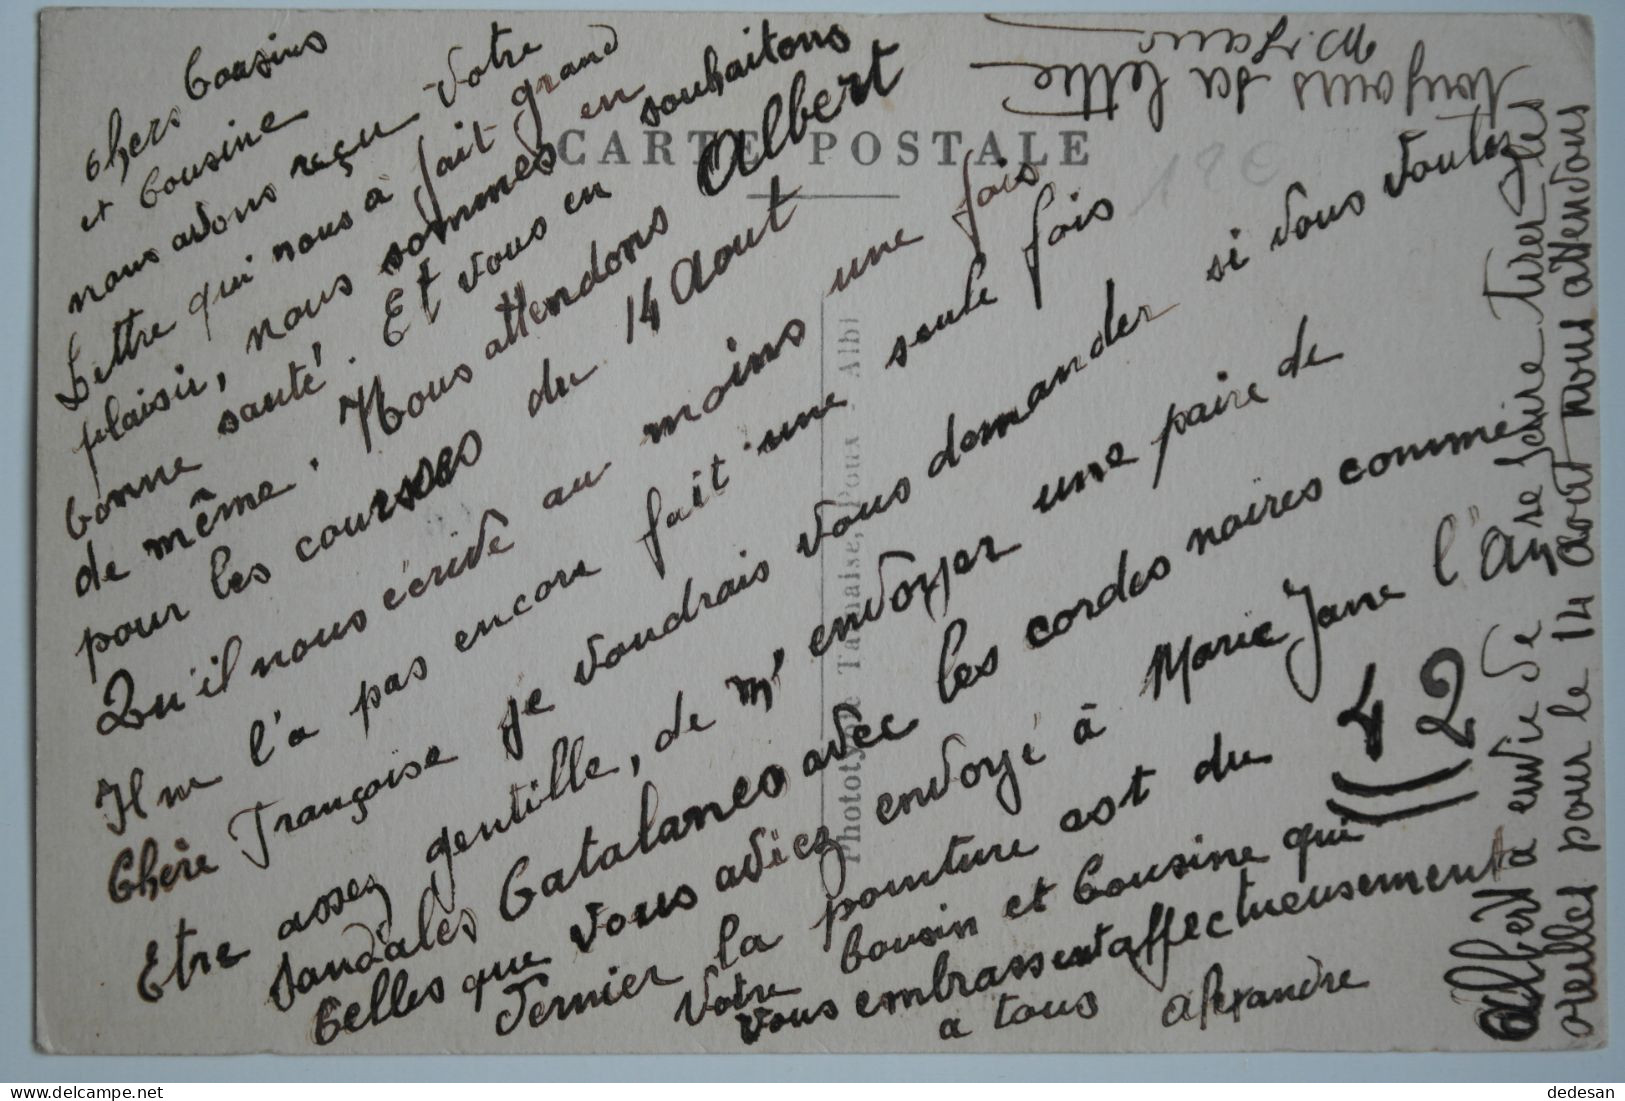 chers Cousins
et Cousine
nous avons reçu votre
Lettre qui nous à fait grand
plaisir, nous sommes en
bonne santé. Et vous en souhaitons
de même. Nous attendons Albert
pour les courses du 14 Aout
Qu'il nous écrive au moins une fois
Il ne l'a pas encore fait une seule fois
Chère Françoise je voudrais vous demander si vous voulez
Etre assez gentille, de m' envoyer une paire de
Sandales Catalanes avec les cordes noires comme
Celles que vous aviez envoyé à Marie Jane l'An
Dernier la pointure est du 42
Votre Cousin et Cousine qui
vous embrassent affectueusement
a tous Alexandre
Albert a envie de se faire tirer les
oreilles pour le 14 Aout nous attendons
toujours sa lettre
CARTE POSTALE
12€
Phototypie Tarnaise, Poux - Albi
dedesan